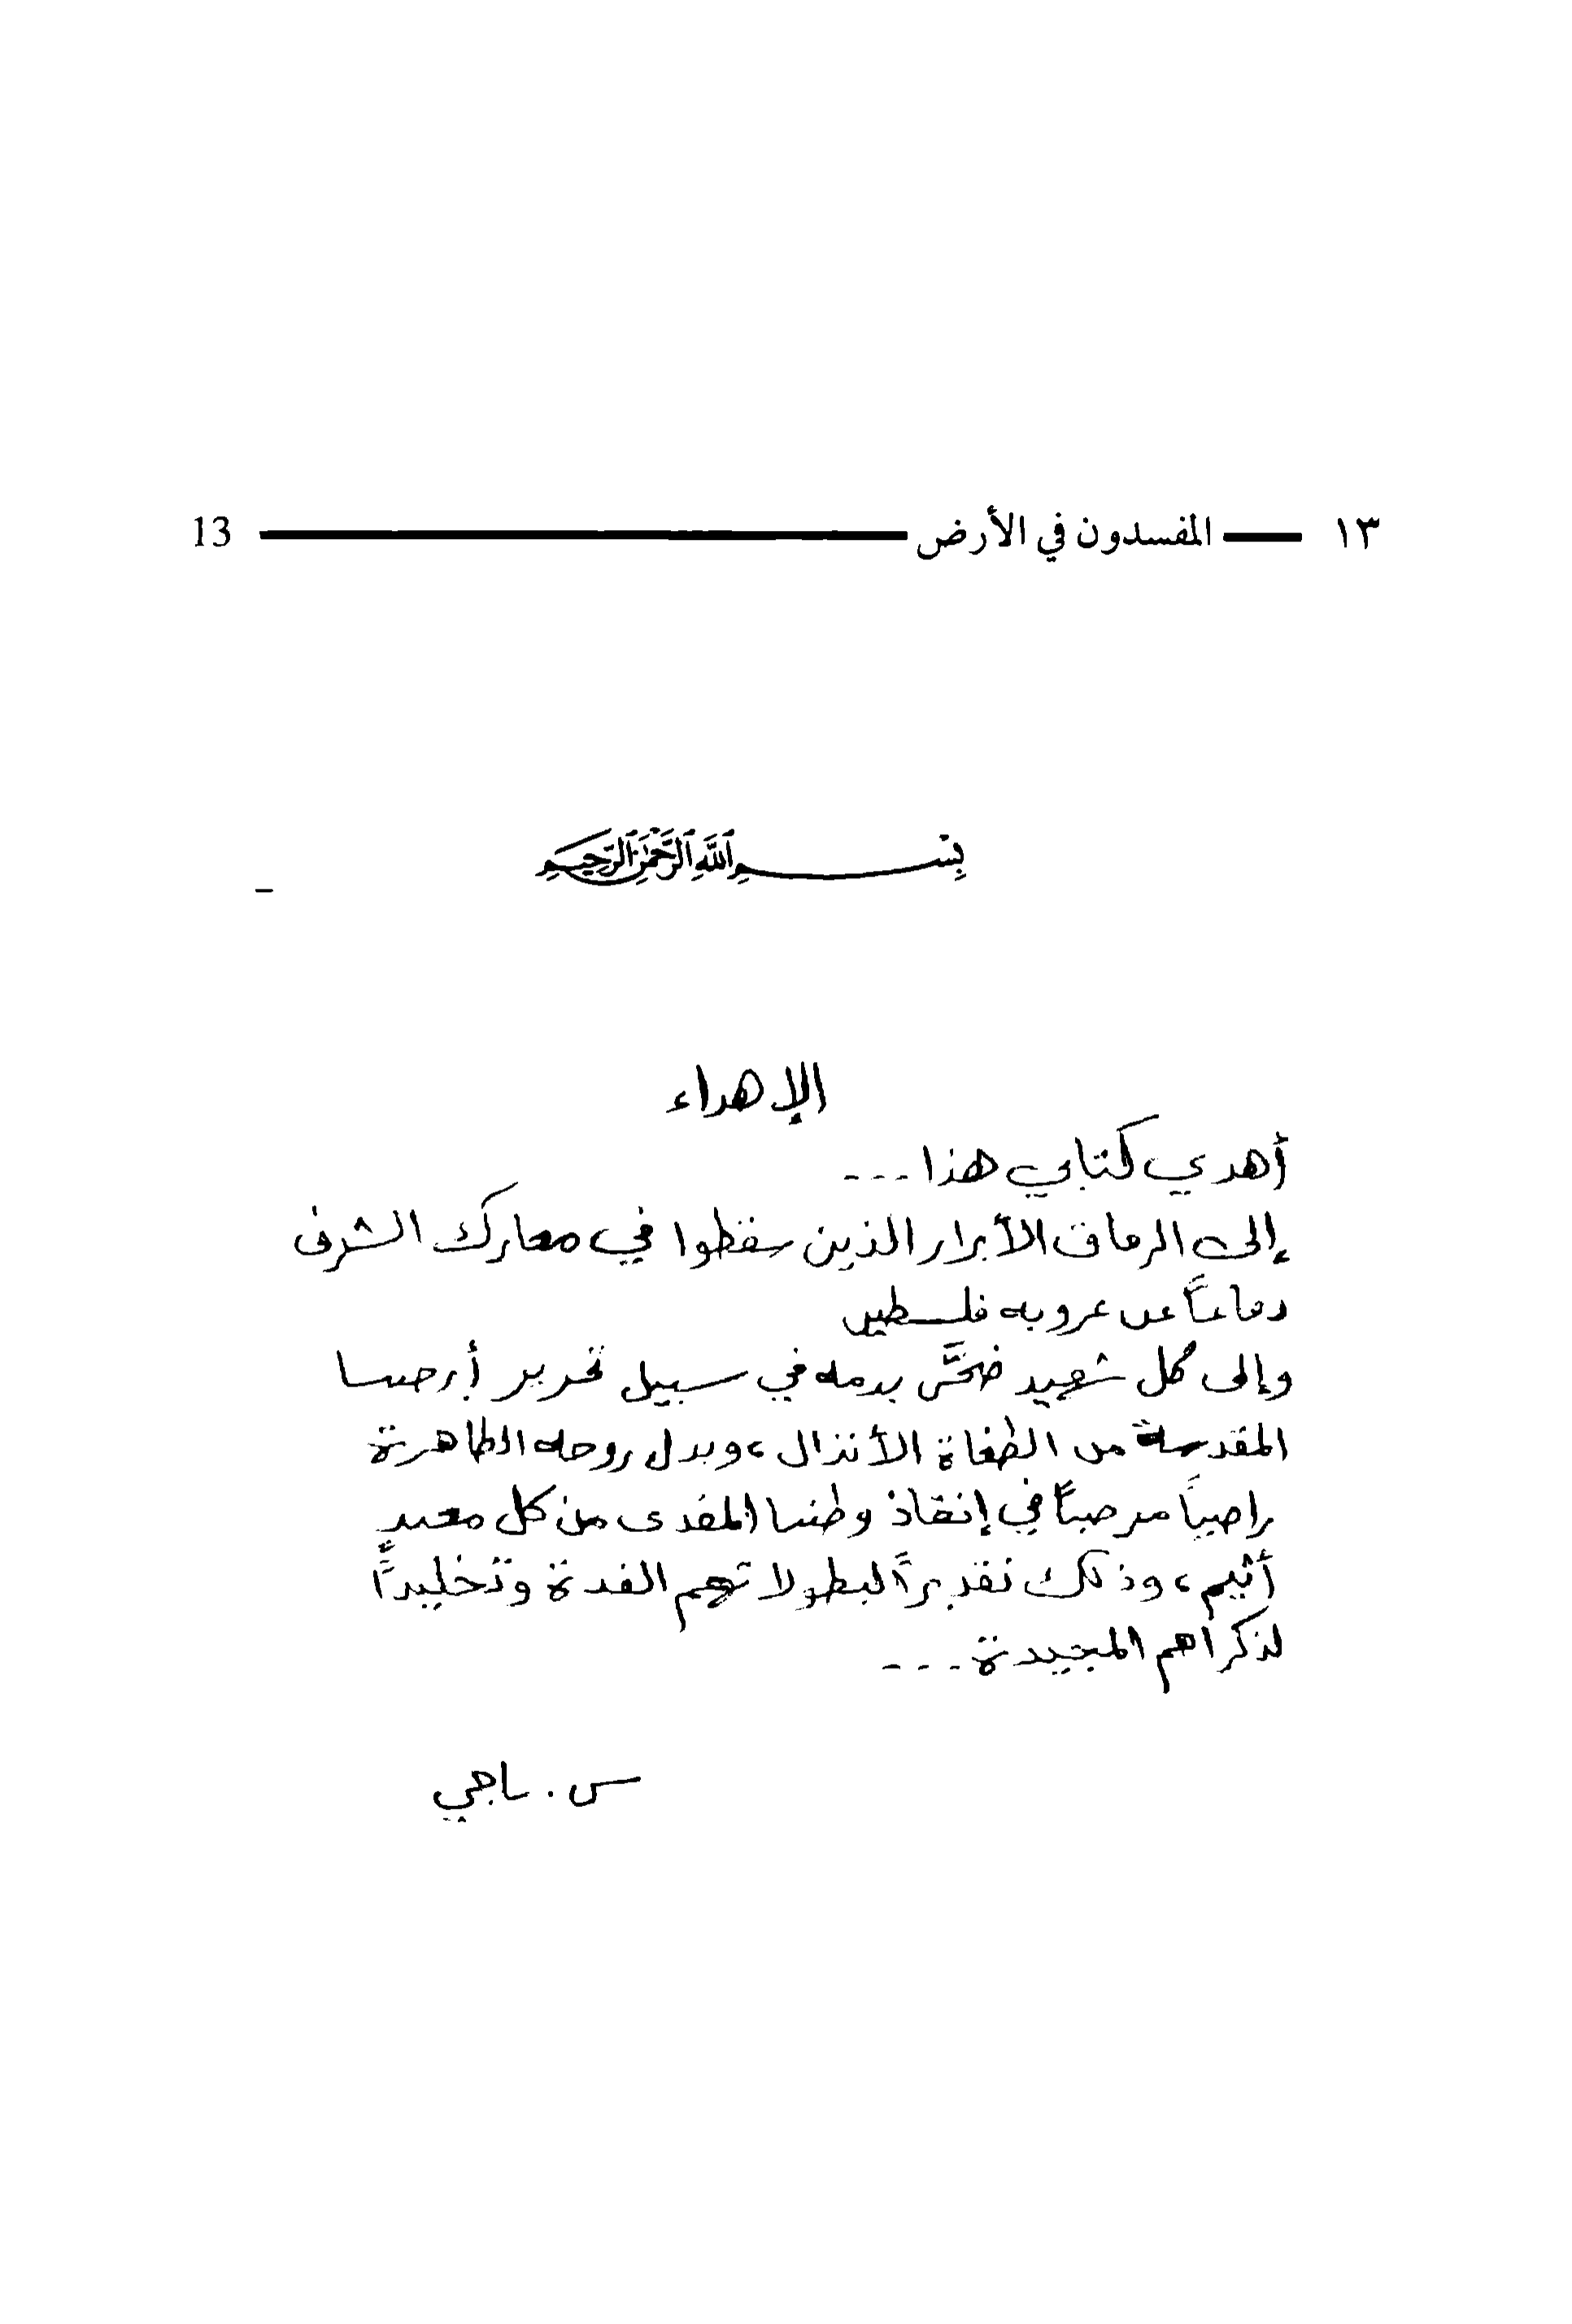 ١٣ المفسدون في الأرض 13
بسم الله الرحمن الرحيم
الإهداء
أهدي كتابي هذا ...
إلى الرفاق الأبرار الذين سقطوا في معارك الشرف
دفاعاً عن عروبة فلسطين
وإلى كل شهيد ضحَّى بدمه في سبيل تحرير أرضنا
المقدسة من الطغاة الأنذال، وبذل روحه الطاهرة
راضياً مرضياً في إنقاذ وطننا المفدى من كل معتدٍ
أثيم، وذلك تقديراً لبطولاتهم الفذة وتخليداً
لذكراهم المجيدة ...
س. ناجي